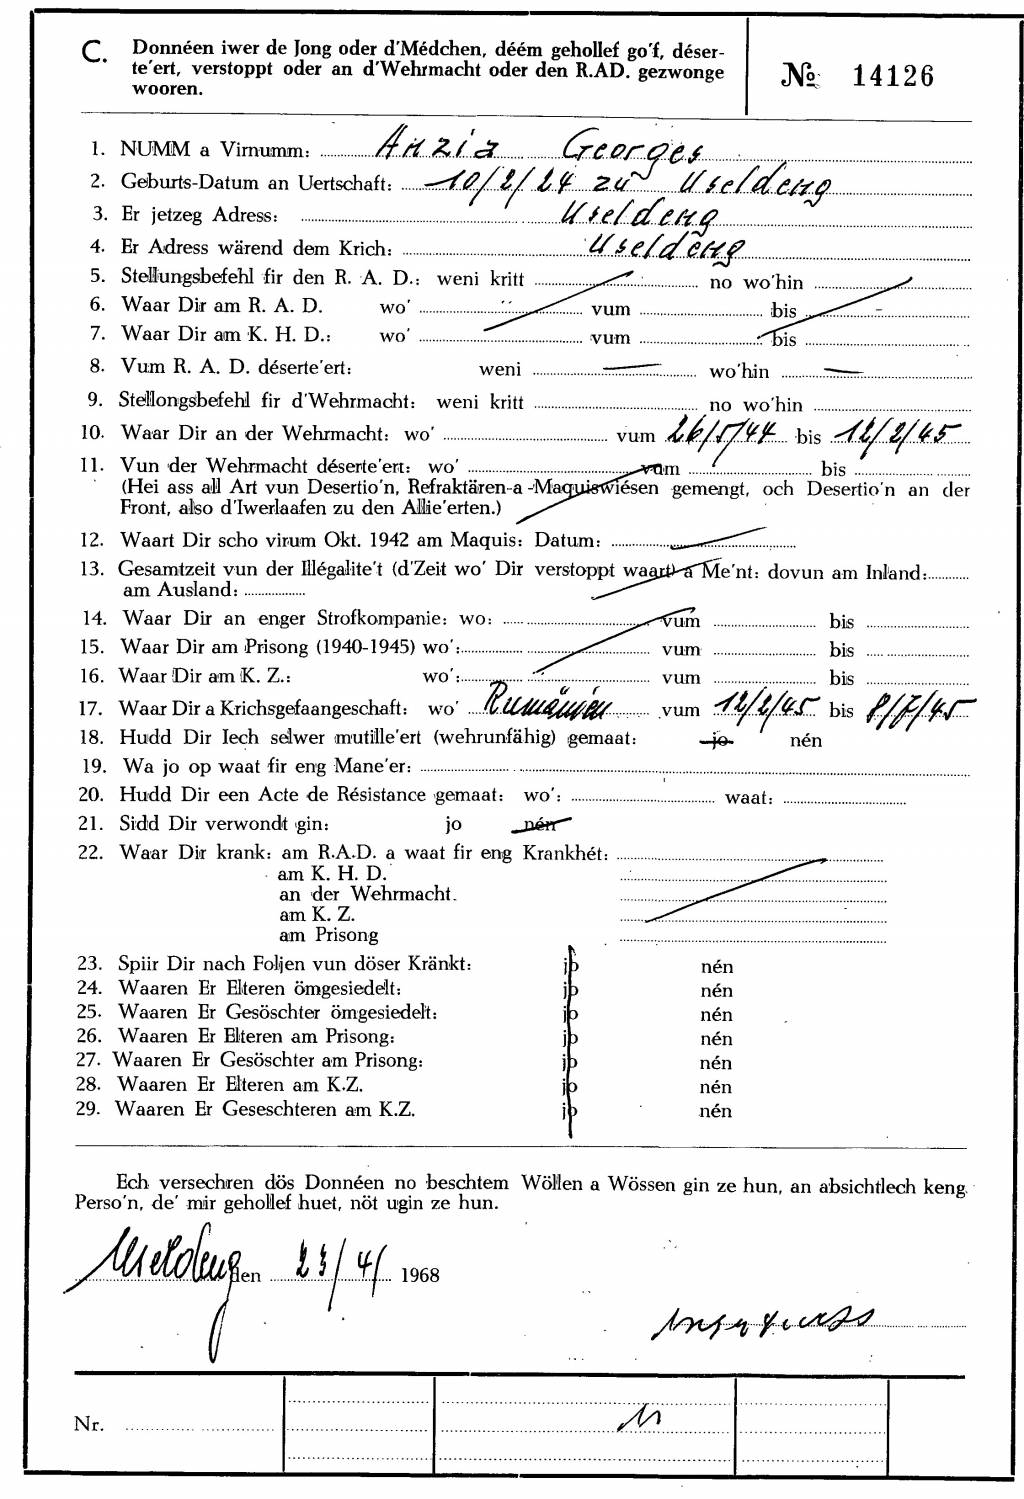 C. Donnéen iwer de Jong oder d'Médchen, déém gehollef go'f, déser-
te'ert, verstoppt oder an d'Wehrmacht oder den R.AD. gezwonge
wooren.
№ 14126
1. NUMM a Virnumm: Anzia Georges
2. Geburts-Datum an Uertschaft: 10/2/24 zu Useldeng
3. Er jetzeg Adress: Useldeng
4. Er Adress wärend dem Krich: Useldeng
5. Stellungsbefehl fir den R. A. D.: weni kritt no wo'hin
6. Waar Dir am R. A. D. wo' vum bis
7. Waar Dir am K. H. D.: wo' vum bis
8. Vum R. A. D. déserte'ert: weni wo'hin
9. Stellongsbefehl fir d'Wehrmacht: weni kritt no wo'hin
10. Waar Dir an der Wehrmacht: wo' vum 26/5/44 bis 12/2/45
11. Vun der Wehrmacht déserte'ert: wo' vum bis
(Hei ass all Art vun Desertio'n, Refraktären-a -Maquiswiésen gemengt, och Desertio'n an der
Front, also d'Iwerlaafen zu den Allie'erten.)
12. Waart Dir scho virum Okt. 1942 am Maquis: Datum:
13. Gesamtzeit vun der Illégalite't (d'Zeit wo' Dir verstoppt waart) a Me'nt: dovun am Inland:
am Ausland:
14. Waar Dir an enger Strofkompanie: wo: vum bis
15. Waar Dir am Prisong (1940-1945) wo': vum bis
16. Waar Dir am K. Z.: wo': vum bis
17. Waar Dir a Krichsgefaangeschaft: wo' Rumänien vum 12/2/45 bis 8/7/45
18. Hudd Dir Iech selwer mutille'ert (wehrunfähig) gemaat: jo nén
19. Wa jo op waat fir eng Mane'er:
20. Hudd Dir een Acte de Résistance gemaat: wo': waat:
21. Sidd Dir verwondt gin: jo nén
22. Waar Dir krank: am R.A.D. a waat fir eng Krankhét:
am K. H. D.
an der Wehrmacht.
am K. Z.
am Prisong
23. Spiir Dir nach Foljen vun döser Kränkt: jo nén
24. Waaren Er Elteren ömgesiedelt: jo nén
25. Waaren Er Gesöschter ömgesiedelt: jo nén
26. Waaren Er Elteren am Prisong: jo nén
27. Waaren Er Gesöschter am Prisong: jo nén
28. Waaren Er Elteren am K.Z. jo nén
29. Waaren Er Geseschteren am K.Z. jo nén
Ech versechren dös Donnéen no beschtem Wöllen a Wössen gin ze hun, an absichtlech keng
Perso'n, de' mir gehollef huet, nöt ugin ze hun.
Useldeng den 23/4/ 1968
Nr.